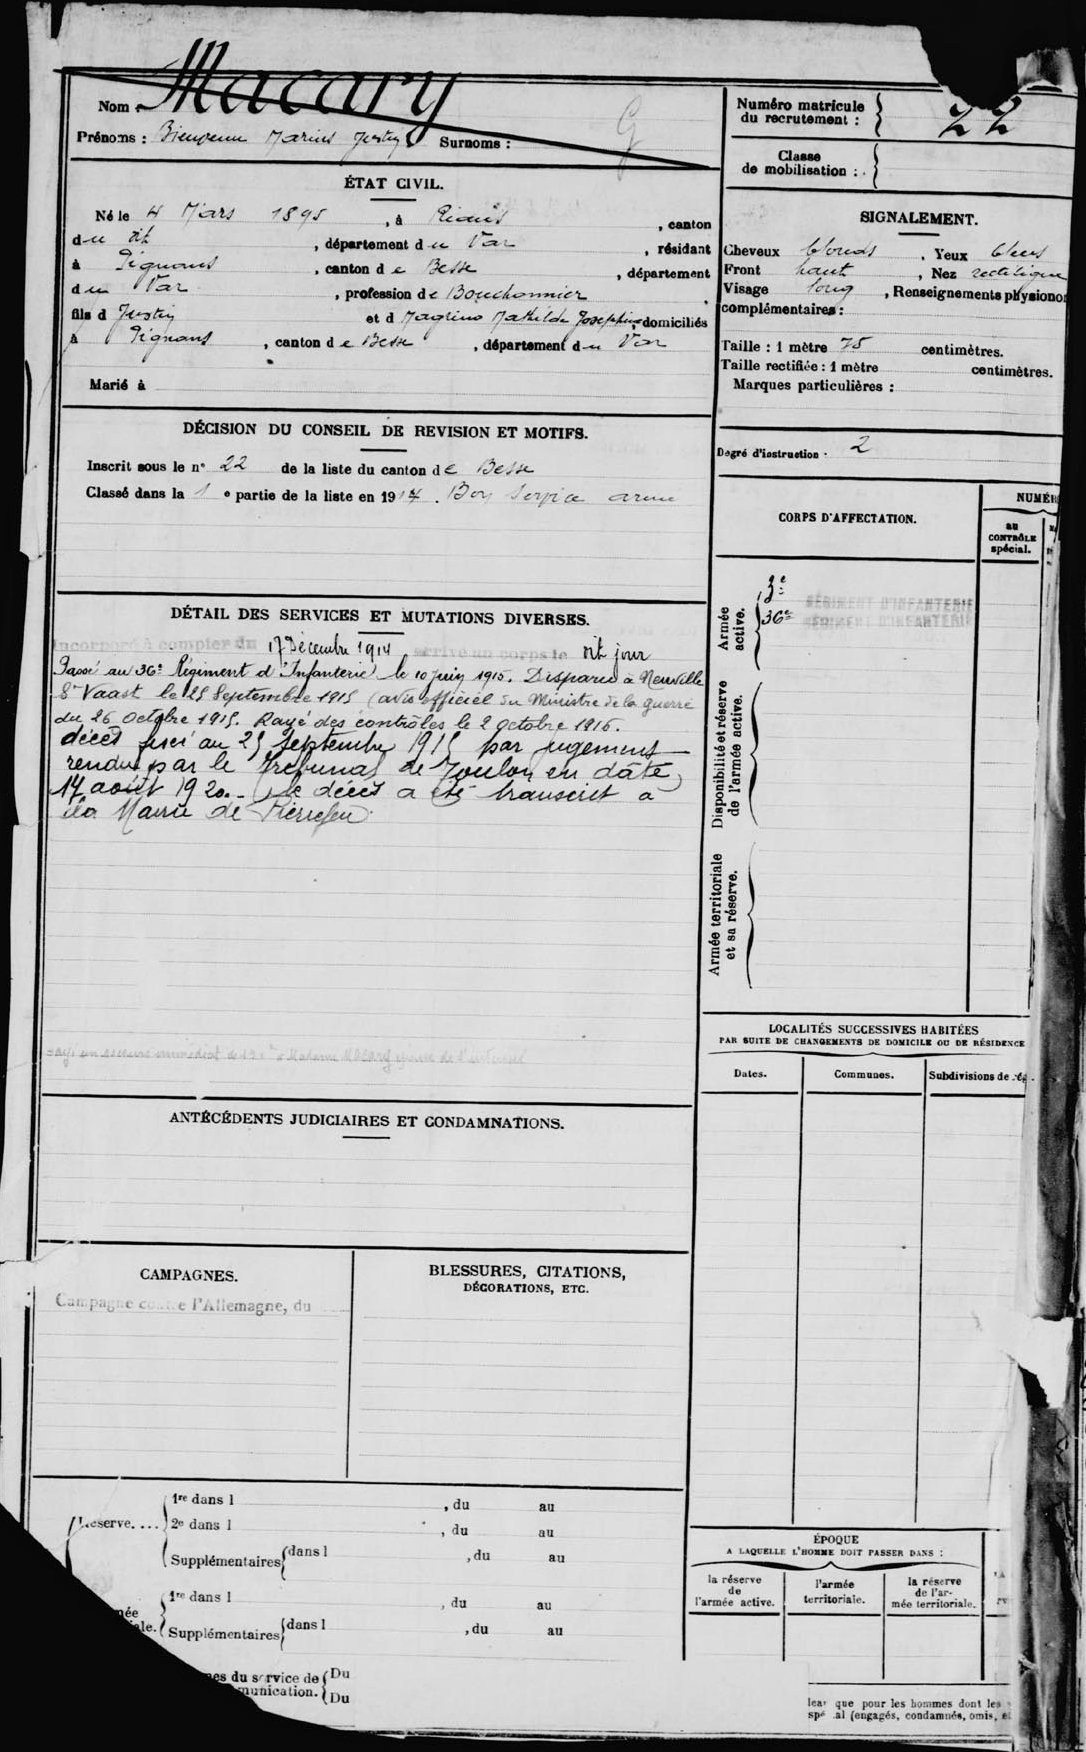 Nom : Macary
Prénoms : Bienvenu Marius Justin Surnoms :
G
Numéro matricule du recrutement : 22
Classe de mobilisation :
ÉTAT CIVIL.
Né le 4 Mars 1895, à Rians, canton
du dit, département du Var, résidant
à Pignans, canton de Besse, département
du Var, profession de Bouchonnier
fils d Justin et d Magrino Mathilde Joséphine, domiciliés
à Pignans, canton de Besse, département du Var
Marié à
SIGNALEMENT.
Cheveux blonds, Yeux bleus
Front haut, Nez rectiligne
Visage long, Renseignements physiono
complémentaires :
Taille : 1 mètre 75 centimètres.
Taille rectifiée : 1 mètre centimètres.
Marques particulières :
Degré d'instruction : 2
DÉCISION DU CONSEIL DE REVISION ET MOTIFS.
Inscrit sous le n° 22 de la liste du canton de Besse
Classé dans la 1e partie de la liste en 1914. Bon Service armé
DÉTAIL DES SERVICES ET MUTATIONS DIVERSES.
Incorporé à compter du 17 Décembre 1914 arrivé au corps le dit jour
Passé au 36e Régiment d'Infanterie le 10 juin 1915. Disparu à Neuville
St Vaast le 25 Septembre 1915 (avis officiel du Ministre de la guerre
du 26 octobre 1915. Rayé des contrôles le 2 octobre 1916.
décès fixé au 25 Septembre 1915 par jugement
rendu par le Tribunal de Toulon en date
14 août 1920. Le décès a été transcrit à
la Mairie de Pierrefeu.
CORPS D'AFFECTATION.
NUMÉR
au CONTRÔLE spécial.
Armée active.
3e RÉGIMENT D'INFANTERIE
36e RÉGIMENT D'INFANTERIE
Disponibilité et réserve de l'armée active.
Armée territoriale et sa réserve.
LOCALITÉS SUCCESSIVES HABITÉES
PAR SUITE DE CHANGEMENTS DE DOMICILE OU DE RÉSIDENCE
Dates. Communes. Subdivisions de rég.
ANTÉCÉDENTS JUDICIAIRES ET CONDAMNATIONS.
CAMPAGNES.
Campagne contre l'Allemagne, du
BLESSURES, CITATIONS,
DÉCORATIONS, ETC.
Réserve....
1re dans l , du au
2e dans l , du au
Supplémentaires dans l , du au
1re dans l , du au
Supplémentaires dans l , du au
es du service de Du
munication. Du
ÉPOQUE
A LAQUELLE L'HOMME DOIT PASSER DANS :
la réserve de l'armée active.
l'armée territoriale.
la réserve de l'armée territoriale.
que pour les hommes dont les
al (engagés, condamnés, omis,